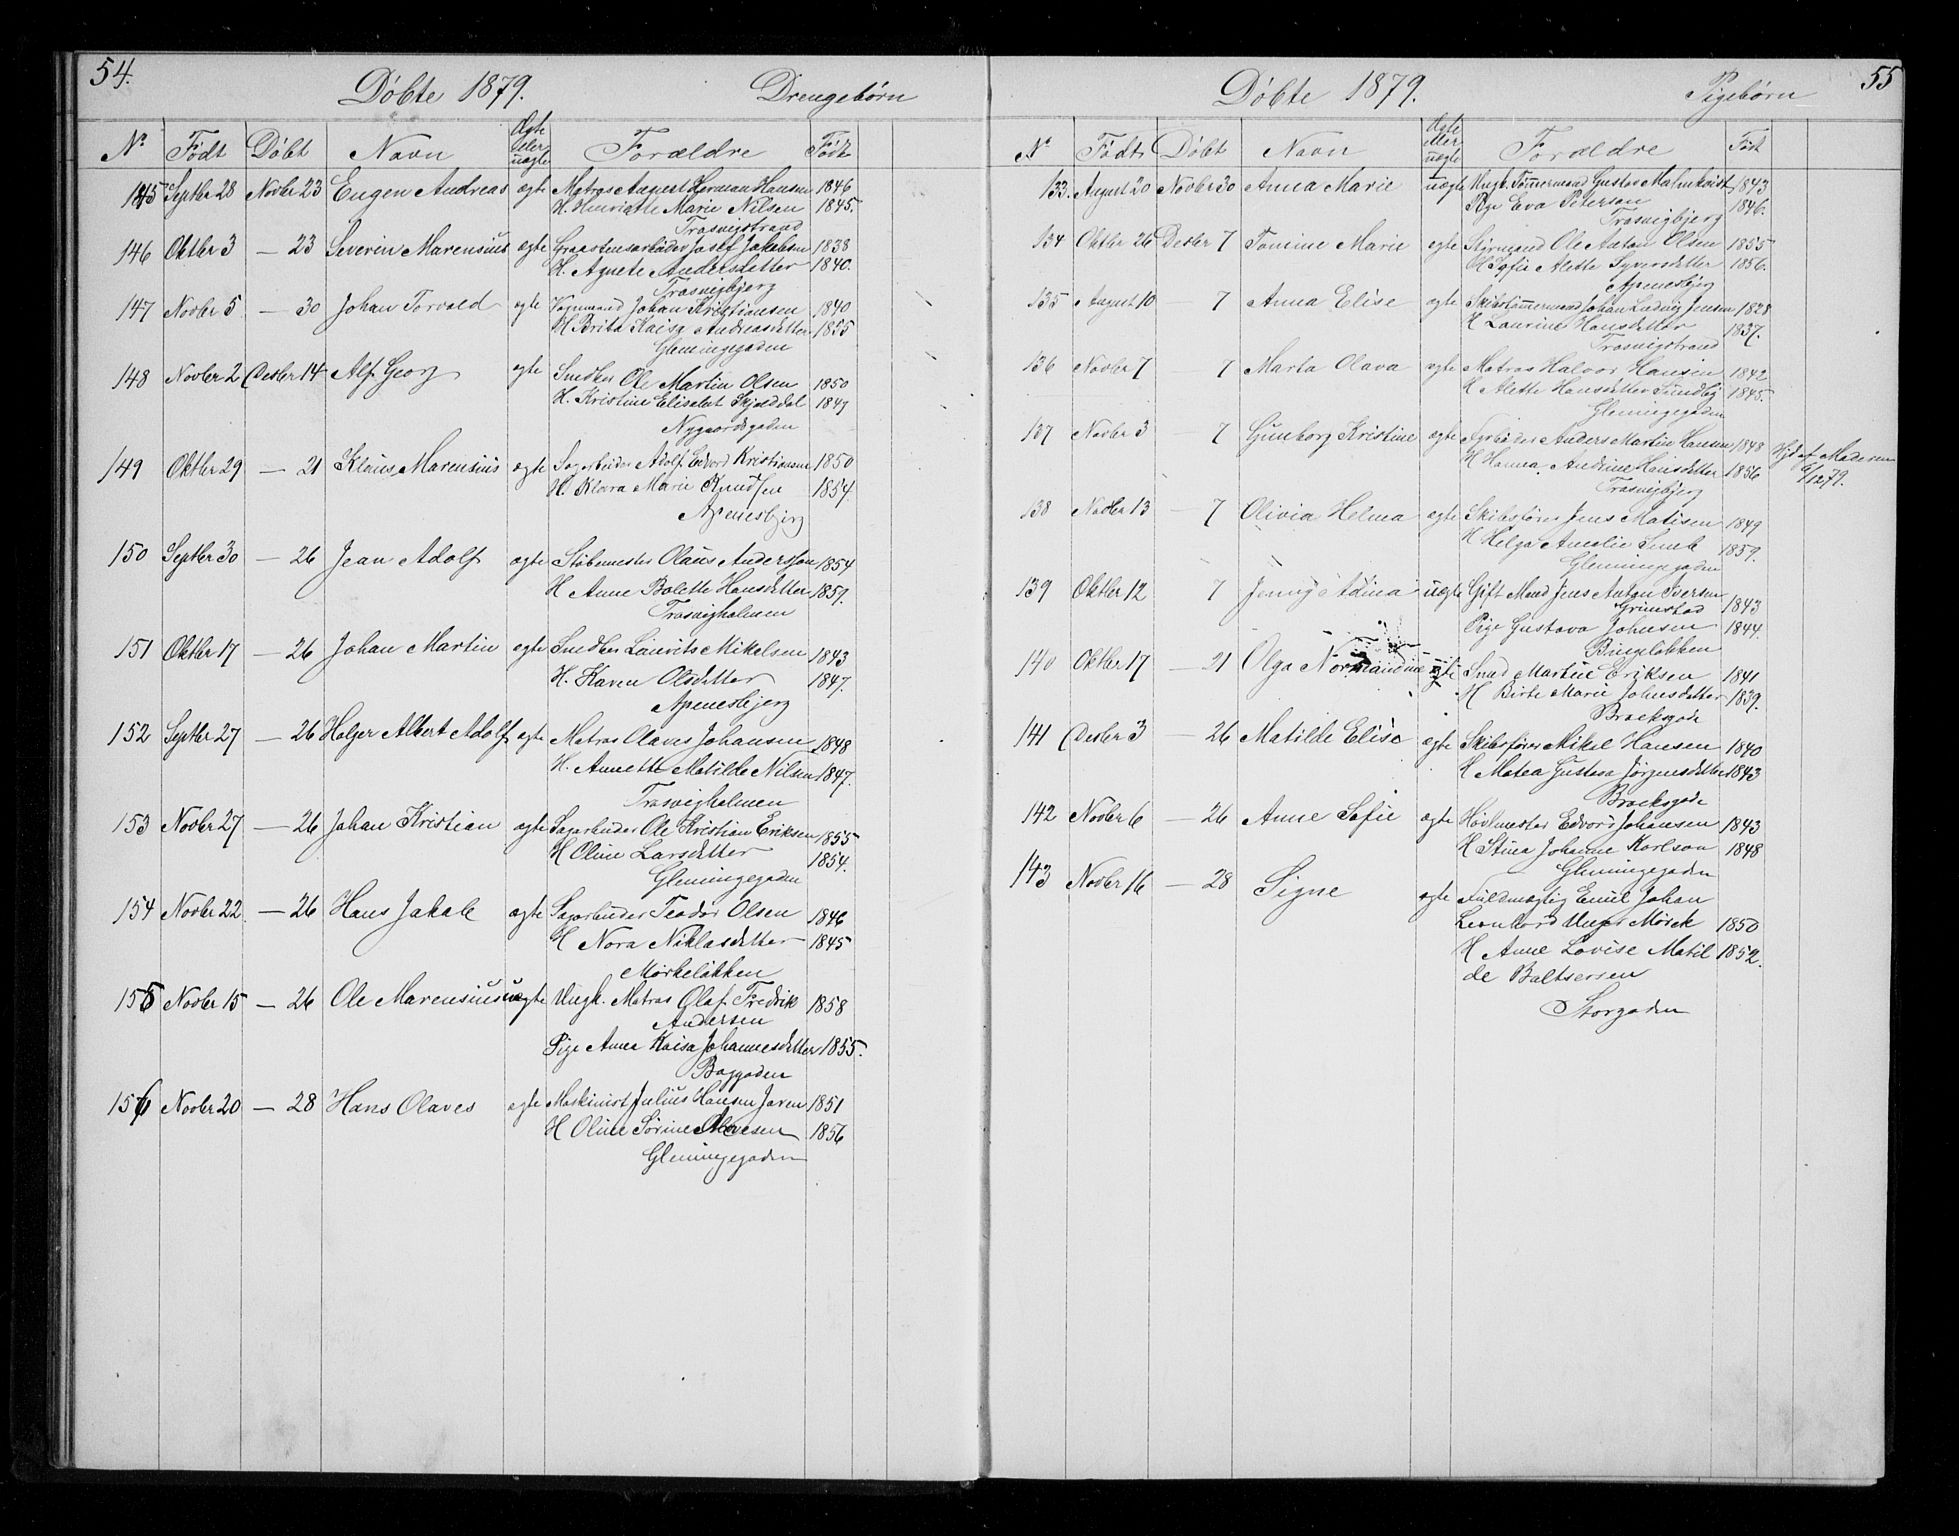 54.
Döbte 1879. Drengebörn
No Födt Döbt Navn Ægte eller uægte Forældre Födt
145 Septbr 28 Novbr 23 Eugen Andreas ægte Matros August Herman Hansen 1846
H. Henriette Marie Nilsen 1845.
Trosvigstrand
146 Oktbr 3 — 23 Severin Marensius ægte Josef Jakobsen 1838
H. Agnete Andersdetter 1840.
Trosvigbjerg
147 Novbr 5 — 30 Johan Torvald ægte Vognmand Johan Kristiansen 1840
H Brita Kaisa Andreasdetter 1835
Glemmegaden
148 Novbr 2 Desbr 14 Alf Georg ægte Snedker Ole Martin Olsen 1850
H. Kristine Elisabet Skjolddal 1849
Nygaardsgaden
149 Oktbr 29 — 21 Klaus Marensius ægte Sagarbeider Adolf Edvard Kristiansen 1850
H. Klara Marie Knudsen 1854.
Apenesbjerg
150 Septbr 30 — 26 Jean Adolf ægte Støbemester Olaus Anderssson 1854
H Anne Bolette Hansdetter 1859.
Trosvigholmen
151 Oktbr 17 — 26 Johan Martin ægte Snedker Laurits Mikelsen 1843
H. Karen Olsdetter 1847.
Apenesbjerg
152 Septbr 27 — 26 Holger Albert Adolf ægte Matros Olaves Johansen 1848
H. Annette Matilde Nilsen 1847.
Trosvigholmen
153 Novbr 27 — 26 Johan Kristian ægte Sagarbeider Ole Kristian Eriksen 1855
H Oline Larsdetter 1854.
Glemmegaden
154 Novbr 22. — 26 Hans Jakob ægte Sagarbeider Teodor Olsen 1846
H Nora Niklasdetter 1845
Mørkeløkken
155 Novbr 15 — 26 Ole Marensius uægte Ungk. Matros Olaf Fredrik 1858
Andersen
Pige Anna Kaisa Johannesdetter 1855.
Baggaden
156 Novbr 20 — 28 Hans Olaves ægte Maskinist Julius Hansen 1851
H Oline Sörine Olavesen 1856
Glemmegaden
55
Döbte 1879. Pigebörn
No Födt Döbt Navn Ægte eller uægte Forældre Födt
133. August 20 Novbr 30 Anna Marie uægte Ungk. Tømmermand Gustav Malmkvist 1843
Pige Eva Petersen 1846.
Trosvigbjerg
134 Oktbr 26 Desbr 7 Tomine Marie ægte Styrmand Ole Anton Olsen 1855
H Sofie Alette Syversdetter 1856.
Apenesbjerg
135 August 10 — 7 Anna Elise ægte Skibstømmermand Johan Ludvig Jensen 1828
H Laurine Hansdetter 1837.
Trosvigstrand
136 Novbr 7 — 7 Marta Olava ægte Matros Halvor Hansen 1842
H Alette Hansdetter Sundby 1845.
Glemmegaden
137 Novbr 3 — 7 Gunborg Kristine ægte Fyrbøder Anders Martin Hansen 1848 Hjd af Moderen
H Hanna Andrine Hansdetter 1856 6/12 79.
Trosvigbjerg
138 Novbr 13 — 7 Olivia Helma ægte Skibsfører Jens Matisen 1849
H Helga Amalie 1859.
Glemmegaden
139 Oktbr 12 7 Jenny Adina uægte Gift Mand Jens Anton Iversen
Grimstad 1843
Pige Gustava Johnsen 1844.
Bingeløkken
140 Oktbr 17 — 21 Olga Normandine ægte Smed Martin Eriksen 1841
H Birte Marie Johnsdetter 1839.
Broeksgade
141 Desbr 3 26 Matilde Elise ægte Skibsfører Mikel Hansen 1840
H Matea Gustava Jørgensdetter 1843
Broeksgade
142 Novbr 6 — 26 Anne Sofie ægte Høvlmester Edvard Johansen 1843
H Stina Johanne Karlson 1848
Glemmegaden
143 Novbr 16 — 28 Signe ægte Fuldmægtig Emil Johan
Leonhard Unger Mörck 1850
H Anne Lovise Matil 1852.
de Baltsersen
Storgaden